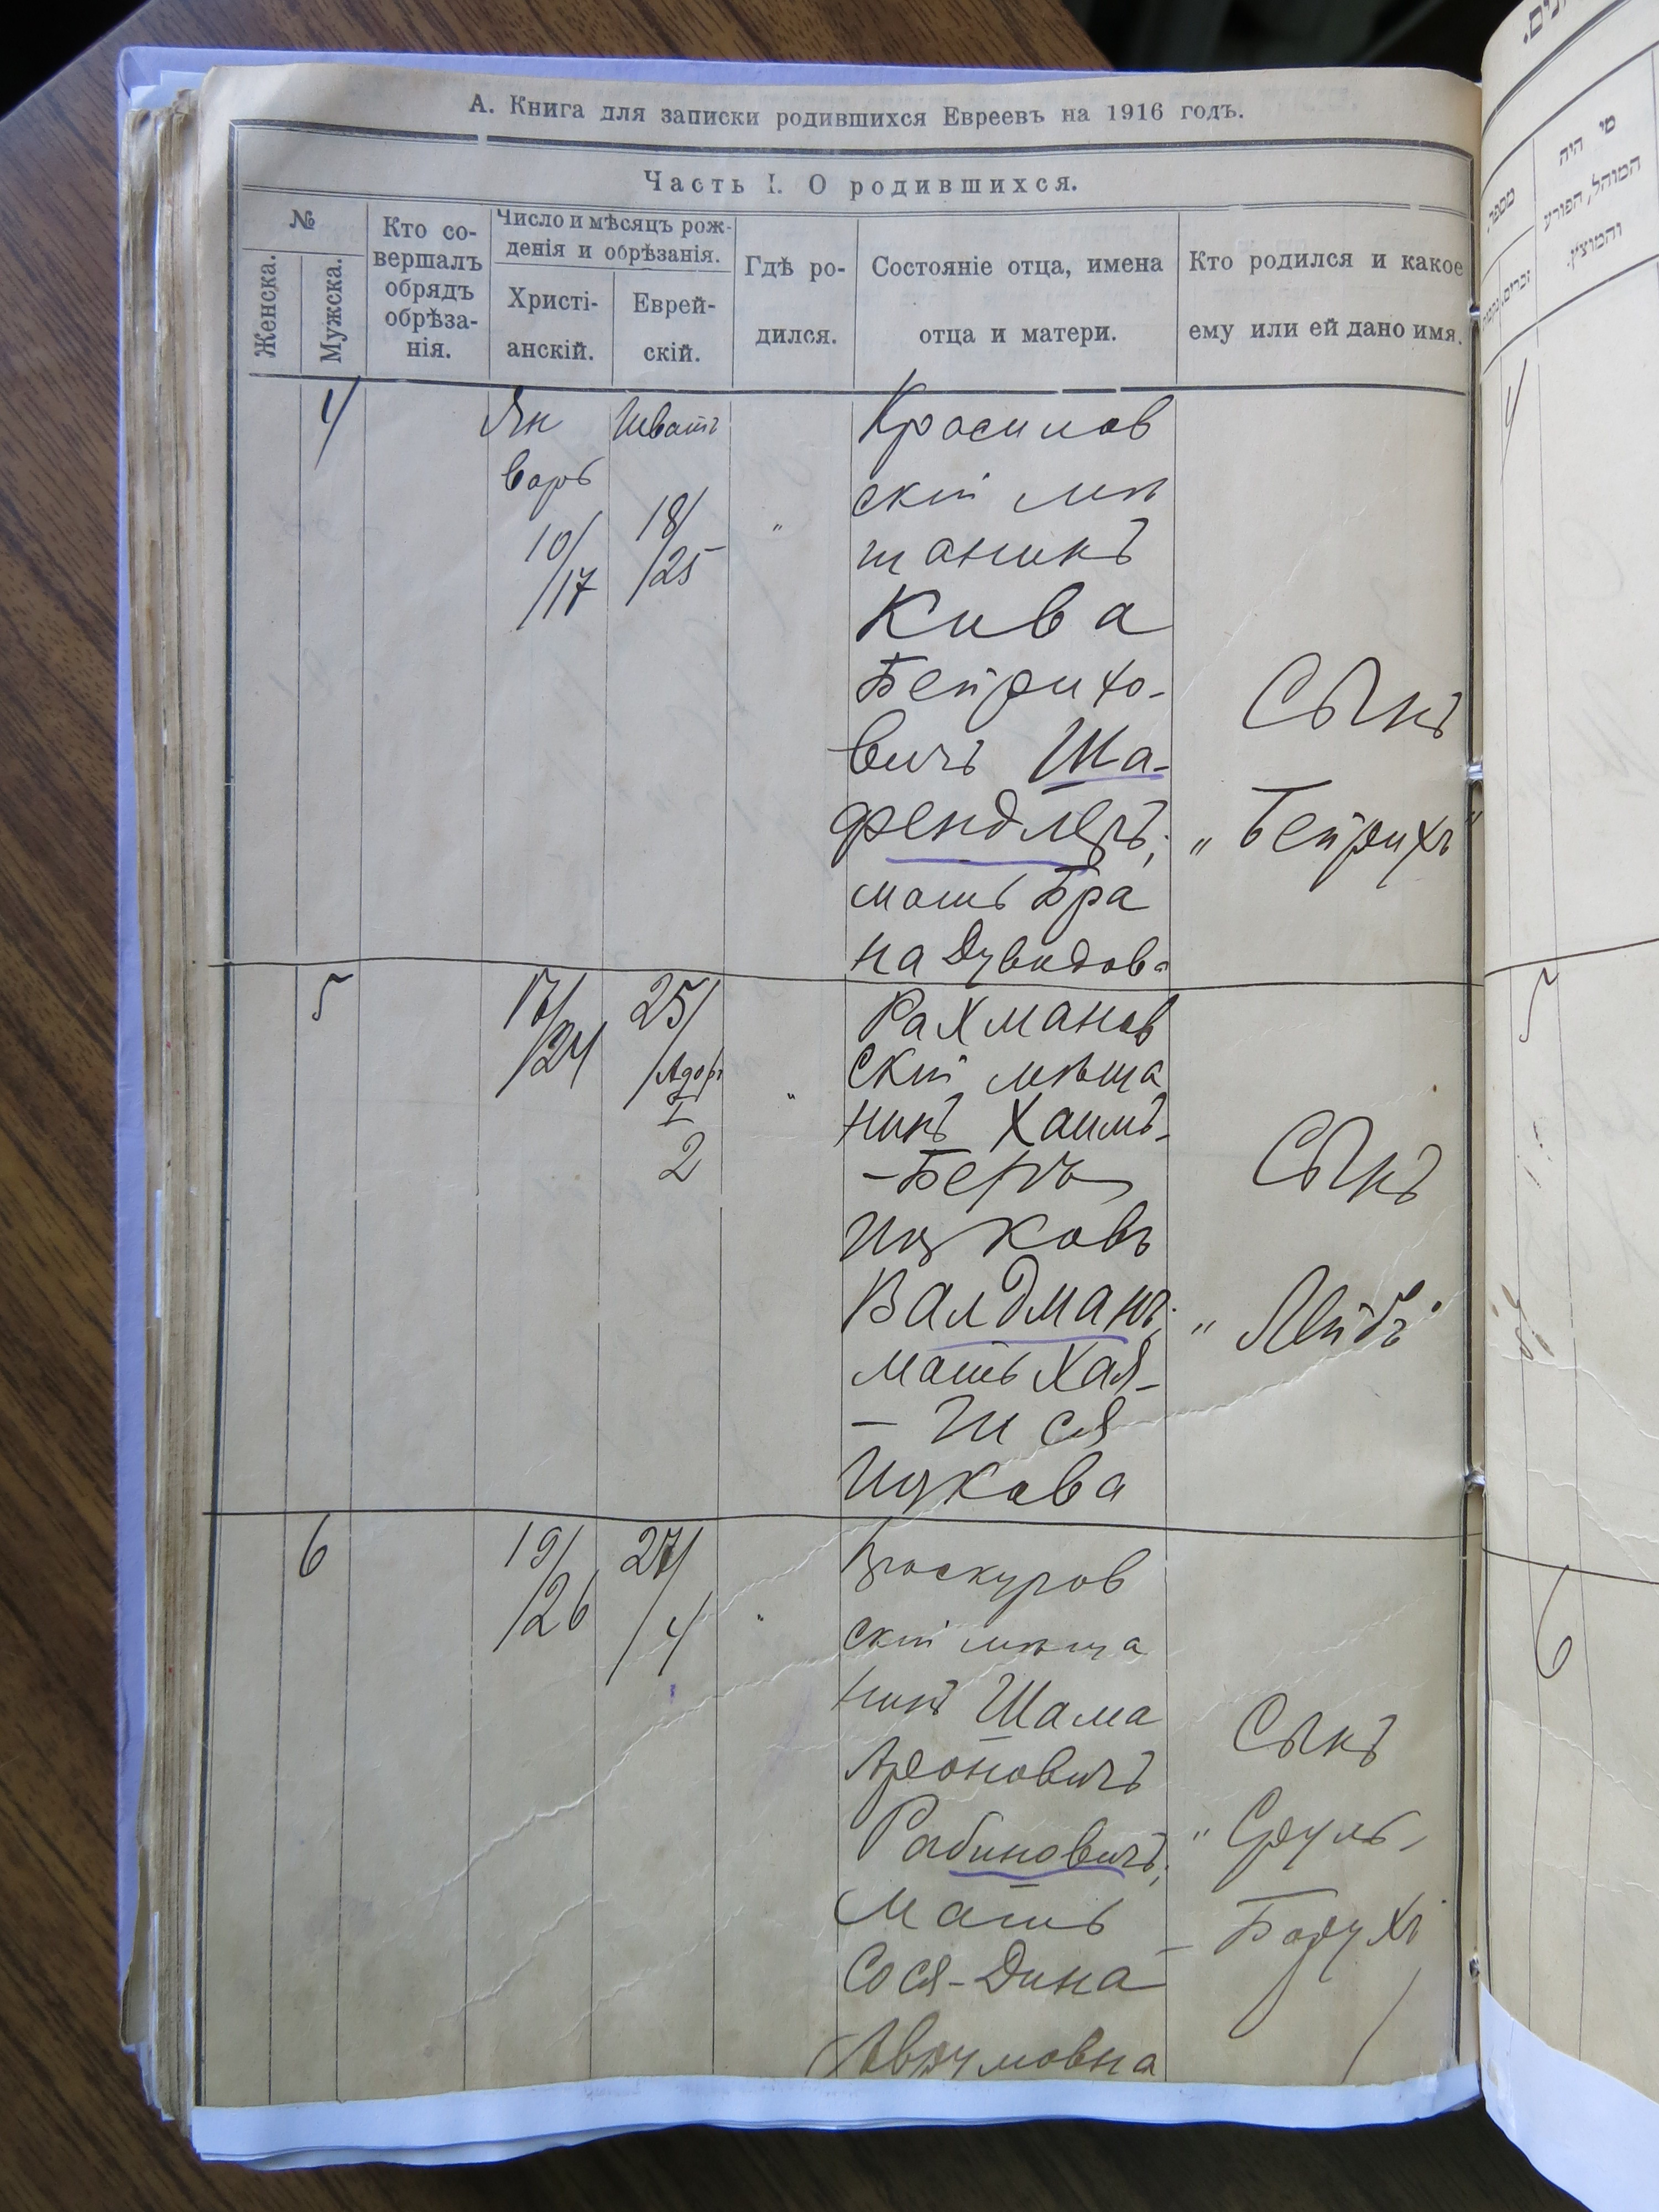 А. Книга для записки родившихся Евреевъ на 1916 годъ.
Часть I. О родившихся.
№
Женска.
Мужска.
Кто со-
вершалъ
обрядъ
обрѣза-
нія.
Число и мѣсяцъ рож-
денія и обрѣзанія.
Христі-
анскій.
Еврей-
скій.
Гдѣ ро-
дился.
Состояніе отца, имена
отца и матери.
Кто родился и какое
ему или ей дано имя.
4
Ян
варь
10/
/17
Шватъ
18/
/25
"
Красилов
скій мѣ
щанинъ
Кива
Бейрихо-
вичъ Ша-
фендлеръ;
мать Бра
на Дувидов
Сынъ
„Бейрихъ"
5
17/
/24
25/
/Адаръ
I
2
"
Рахманов
скій мѣща
нинъ Хаимъ-
-Беръ
Ицковъ
Валдманъ;
мать Хая-
- Ися
Ицкова
Сынъ
„Лейбъ"
6
19/
/26
27/
/4
"
Проскуров
скій мѣща
нинъ Шама
Ароновичъ
Рабиновичъ;
Мать
Сося-Дина
Аврумовна
Сынъ
„Сруль-
- Борухъ
מספר
זכרים
מי היה
המוהל, הפורע
והמוצץ.
4
5
6